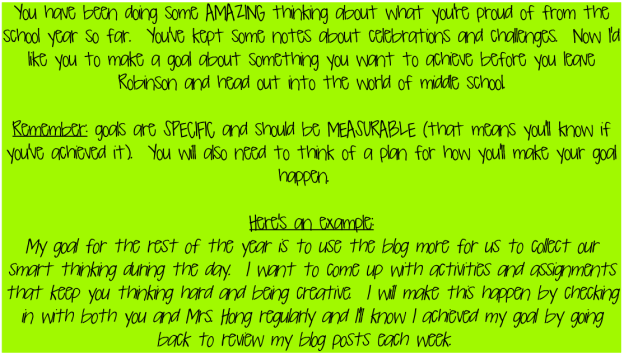 You have been doing some AMAZING thinking about what you're proud of from the
school year so far. You've kept some notes about celebrations and challenges. Now I'd
like you to make a goal about something you want to achieve before you leave
Robinson and head out into the world of middle school.
Remember: goals are SPECIFIC and should be MEASURABLE (that means you'll know if
you've achieved it). You will also need to think of a plan for how you'll make your goal
happen.
Here's an example:
My goal for the rest of the year is to use the blog more for us to collect our
smart thinking during the day. I want to come up with activities and assignments
that keep you thinking hard and being creative. I will make this happen by checking
in with both you and Mrs. Hong regularly and I'll know I achieved my goal by going
back to review my blog posts each week.